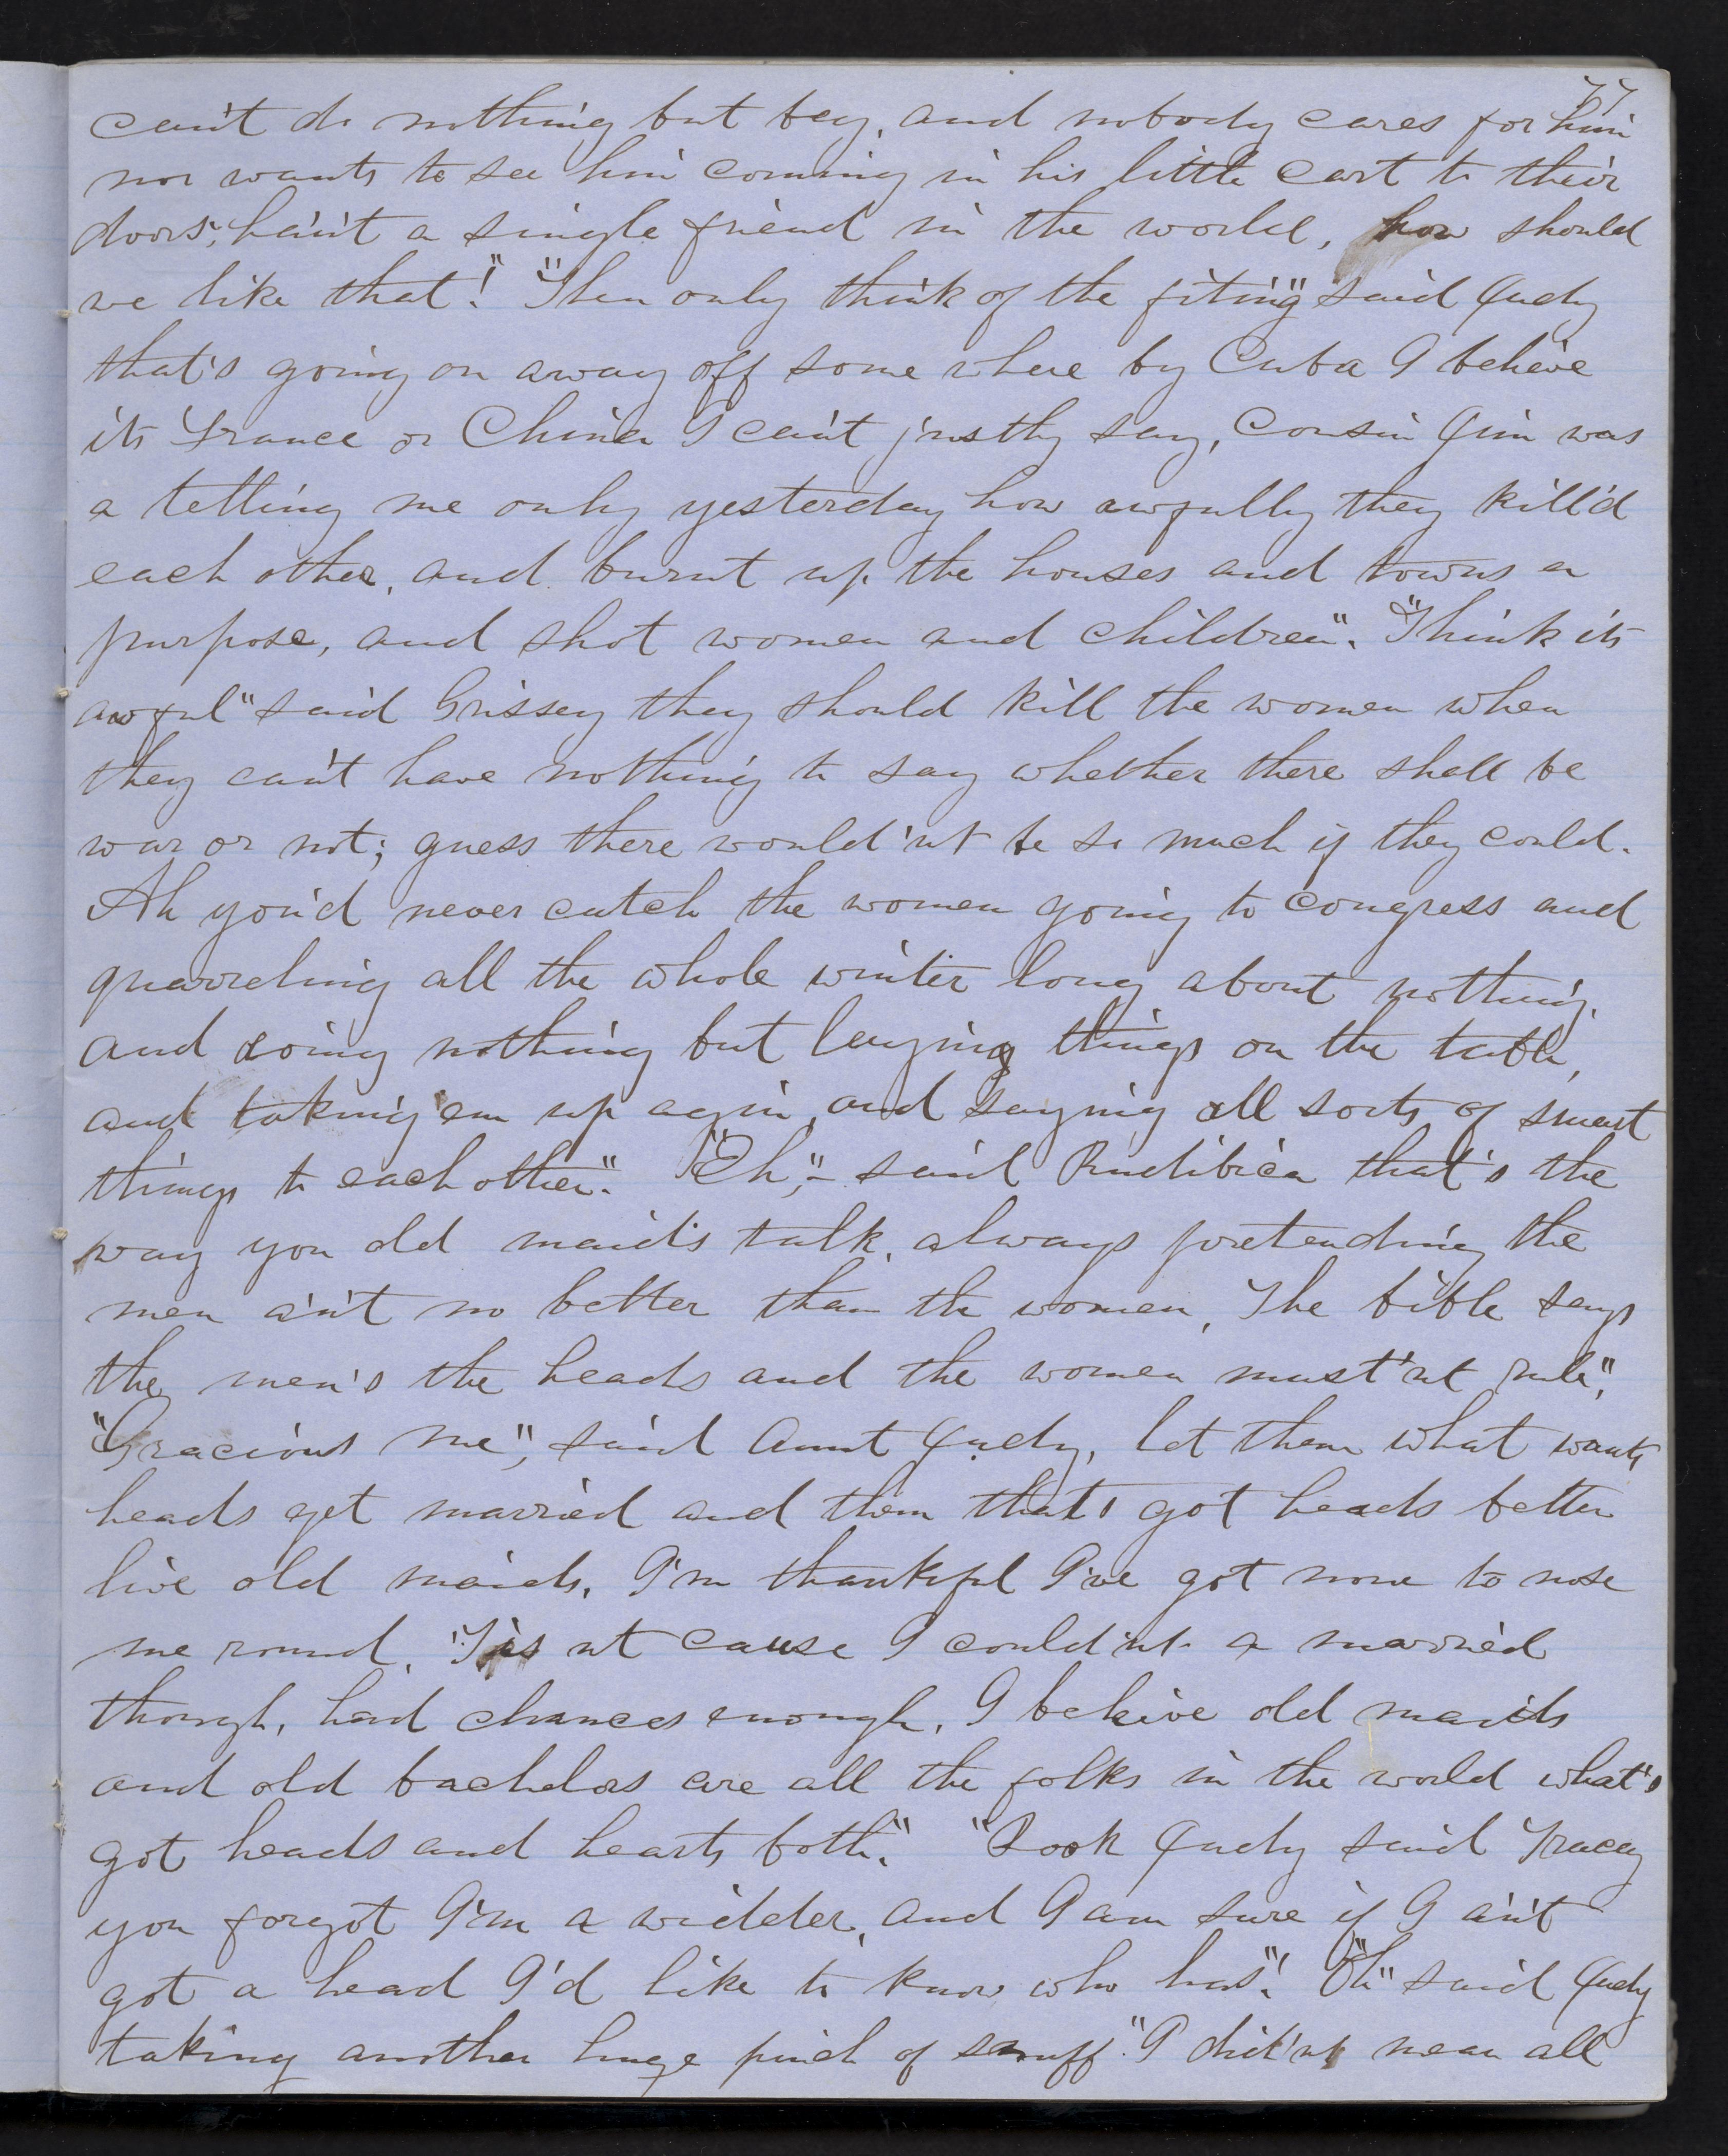 77
can't do nothing but beg, and nobody cares for him
nor wants to see him coming in his little cart to their
doors; hain't a single friend in the world, how should
we like that!" "Then only think of the fiting" said Judy
that's going on away off some where by Cuba I believe
its France or China I can't justly say, Cousin Jim was
a telling me only yesterday how awfully they kill'd
each other, and burnt up the houses and towns a
purpose, and shot women and children". "Think its
awful" said Grissey they should kill the women when
they can't have nothing to say whether there shall be
war or not; guess there would'nt be so much if they could.
Ah you'd never catch the women going to congress and
quarreling all the whole winter long about nothing,
and doing nothing but laying things on the table,
and taking 'em up agin, and saying all sorts of smart
things to each other". "Eh," said Rudibica that's the
way you old maid's talk, always pretending the
men ain't no better than the women, The bible says
the men's the heads and the women must'nt rule",
"Gracious me", said Aunt Judy, let them what wants
heads get married and them that's got heads better
live old maids, I'm thankful I've got none to nose
me round, 'Tis nt cause I could'nt a married
though, had chances enough, I beleive old maids
and old bachelors are all the folks in the world what's
got heads and hearts both". "Look Judy said Tracey
you forgot I'm a widder, and I am sure if I ain't
got a head I'd like to know who has"! "Oh" said Judy
taking another huge pinch of snuff "I did'nt mean all